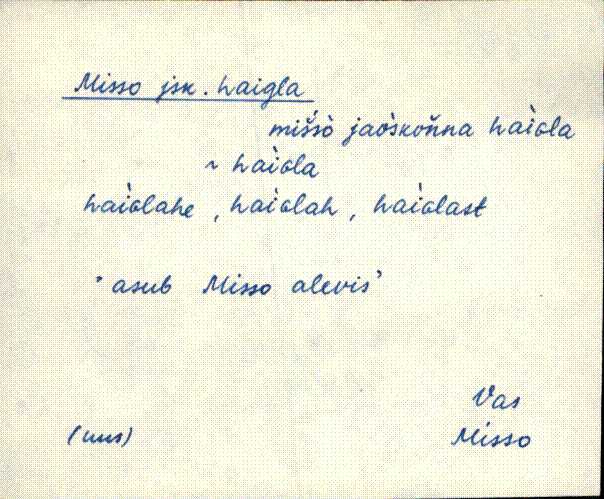 Misso jsk. haigla
miššò jaòskoňna haìɢla
~ haìɢla
haìɢlahe, haìɢlah, haìɢlast
"asub Misso alevis"
Vas
(uus) Misso